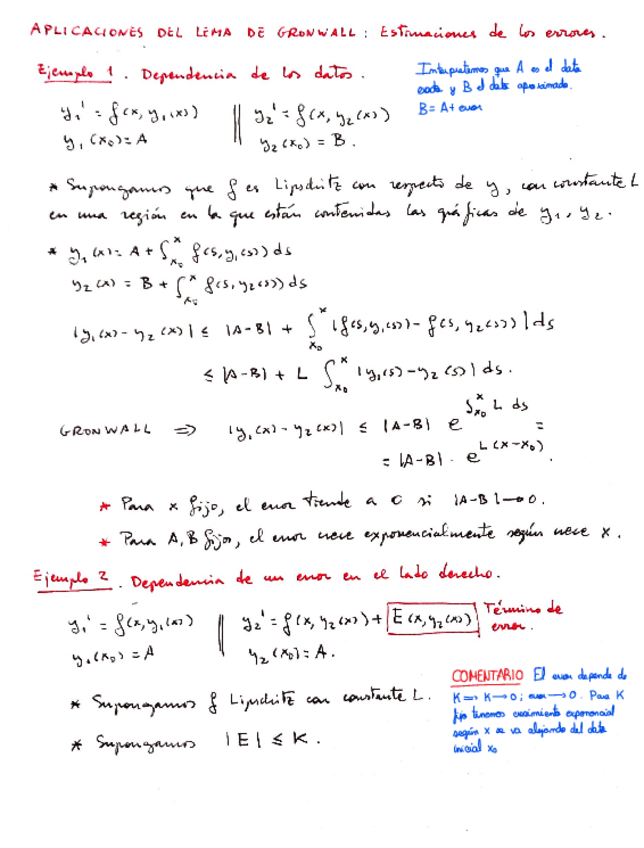 APLICACIONES DEL LEMA DE GRONWALL: Estimaciones de los errores.
Ejemplo 1. Dependencia de los datos.
Interpretamos que A es el dato
exacto y B el dato aproximado.
B = A + error
y₁' = f(x, y₁(x)) || y₂' = f(x, y₂(x))
y₁(x₀) = A y₂(x₀) = B.
* Supongamos que f es Lipschitz con respecto de y, con constante L
en una región en la que están contenidas las gráficas de y₁, y₂.
* y₁(x) = A + ∫_{x₀}^{x} f(s, y₁(s)) ds
y₂(x) = B + ∫_{x₀}^{x} f(s, y₂(s)) ds
|y₁(x) - y₂(x)| ≤ |A-B| + ∫_{x₀}^{x} |f(s, y₁(s)) - f(s, y₂(s))| ds
≤ |A-B| + L ∫_{x₀}^{x} |y₁(s) - y₂(s)| ds.
GRONWALL ⇒ |y₁(x) - y₂(x)| ≤ |A-B| e^{∫_{x₀}^{x} L ds} =
= |A-B| · e^{L(x-x₀)}.
* Para x fijo, el error tiende a 0 si |A-B| → 0.
* Para A, B fijos, el error crece exponencialmente según crece x.
Ejemplo 2. Dependencia de un error en el lado derecho.
y₁' = f(x, y₁(x)) || y₂' = f(x, y₂(x)) + E(x, y₂(x)) Término de
error.
y₁(x₀) = A y₂(x₀) = A.
* Supongamos f Lipschitz con constante L.
* Supongamos |E| ≤ K.
COMENTARIO El error depende de
K ⇒ K → 0; error → 0. Para K
fijo tenemos crecimiento exponencial
según x se va alejando del dato
inicial x₀